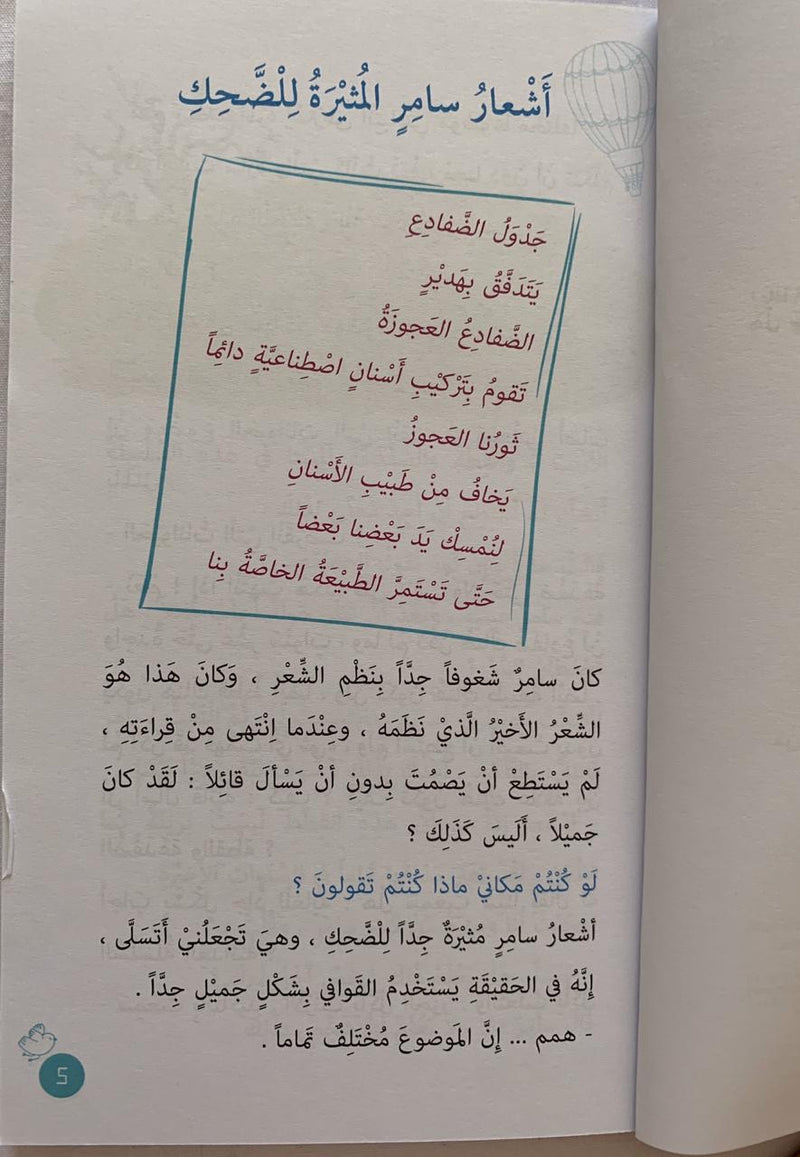 أَشْعارُ سامِرٍ المُثيْرَةُ لِلْضَّحِكِ
جَدْوَلُ الضَّفادِعِ
يَتَدَفَّقُ بِهَديْرٍ
الضَّفادِعُ العَجوزَةُ
تَقومُ بِتَرْكيْبِ أَسْنانٍ اصْطِناعيَّةٍ دائِماً
ثَورُنا العَجوزُ
يَخافُ مِنْ طَبيْبِ الأَسْنانِ
لِنُمْسِكْ يَدَ بَعْضِنا بَعْضاً
حَتَّى تَسْتَمِرَّ الطَّبيْعَةُ الخاصَّةُ بِنا
كانَ سامِرٌ شَغوفاً جِدَّاً بِنَظْمِ الشِّعْرِ ، وَكانَ هَذا هُوَ
الشِّعْرُ الأَخيْرُ الَّذيْ نَظَمَهُ ، وعِنْدَما اِنْتَهى مِنْ قِراءَتِهِ ،
لَمْ يَسْتَطِعْ أنْ يَصْمُتَ بِدونِ أنْ يَسْألَ قائِلاً : لَقَدْ كانَ
جَميْلاً ، أَلَيسَ كَذَلِكَ ؟
لَوْ كُنْتُمْ مَكانيْ ماذا كُنْتُمْ تَقولونَ ؟
أشْعارُ سامِرٍ مُثيْرَةٌ جِدَّاً لِلْضَّحِكِ ، وهيَ تَجْعَلُنيْ أَتَسَلَّى ،
إنَّهُ في الحَقيْقَةِ يَسْتَخْدِمُ القَوافي بِشَكْلٍ جَميْلٍ جِدَّاً .
- همم ... إنَّ المَوضوعَ مُخْتَلِفٌ تَماماً .
5